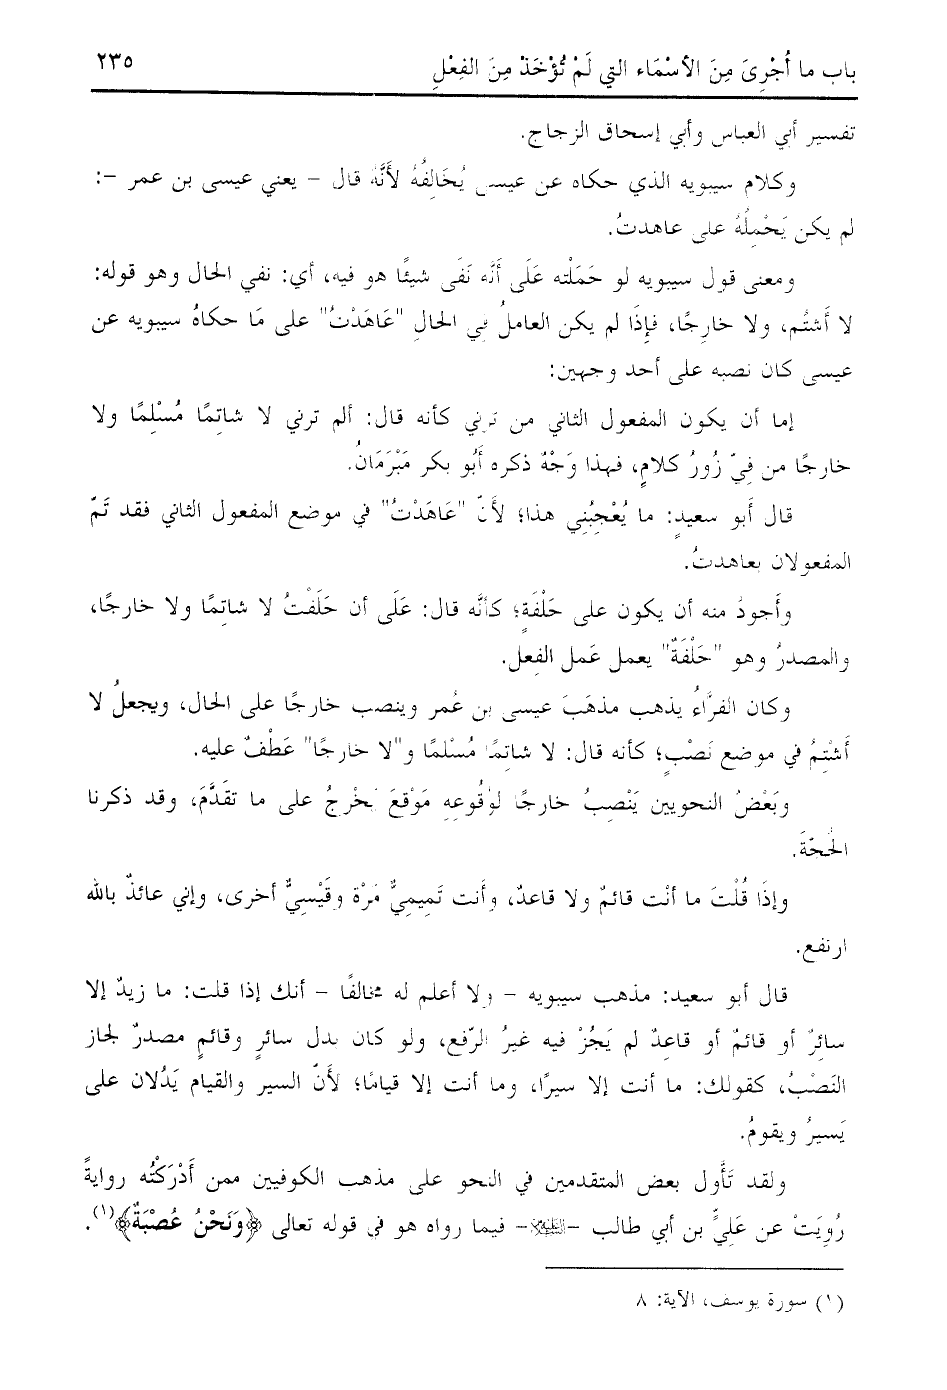 باب ما أُجْرِىَ مِنَ الأسْمَاء التي لَمْ تُؤْخَذْ مِنَ الفِعْلِ ٢٣٥
تفسير أبي العباس وأبي إسحاق الزجاج.
وكلام سيبويه الذي حكاه عن عيسى يُخَالِفُهُ لأَنَّهُ قال – يعني عيسى بن عمر –:
لم يكن يَحْمِلُهُ على عاهدتُ.
ومعنى قول سيبويه لو حَمَلْته عَلَى أَنَّه نَفَى شيئًا هو فيه، أي: نفي الحال وهو قوله:
لا أَشتُم، ولا خارِجًا، فإِذَا لم يكن العاملُ في الحالِ "عَاهَدْتُ" على مَا حكاهُ سيبويه عن
عيسى كان نصبه على أحد وجهين:
إما أن يكون المفعول الثاني من ترني كأنه قال: ألم ترني لا شاتمًا مُسْلِمًا ولا
خارجًا من فِيّ زُورُ كلامٍ، فهذا وَجْهٌ ذكره أَبُو بكر مَبْرَمَانُ.
قال أَبو سعيدٍ: ما يُعْجِبُنِي هذا؛ لأَنّ "عَاهَدْتُ" في موضع المفعول الثاني فقد تَمّ
المفعولان بعاهدتُ.
وأَجودُ منه أن يكون على حَلْفَةٍ؛ كأنَّه قال: عَلَى أن حَلَفْتُ لا شاتمًا ولا خارجًا،
والمصدرُ وهو "حَلْفَةٌ" يعمل عَمل الفِعل.
وكان الفرَّاءُ يذهب مذهَبَ عيسى بن عُمر وينصب خارجًا على الحال، ويجعلُ لا
أَشْتِمُ في موضع نَصْبٍ؛ كأنه قال: لا شاتِمًا مُسْلمًا و"لا خارجًا" عَطْفٌ عليه.
وبَعْضُ النحويين يَنْصِبُ خارجًا لوُقُوعِهِ مَوْقعَ يَخْرجُ على ما تقَدَّمَ، وقد ذكرنا
الحُجّةَ.
وإذَا قُلْتَ ما أنْت قائمٌ ولا قاعدٌ، وأَنت تَمِيمِيٌّ مَرْة وقَيْسِيٌّ أخرى، وإني عائذٌ بالله
ارتفع.
قال أبو سعيد: مذهب سيبويه – ولا أعلم له مخالفًا – أنك إذا قلت: ما زيدٌ إلا
سائرٌ أو قائمٌ أو قاعِدٌ لم يَجُزْ فيه غيرُ الرّفع، ولو كان بدل سائرٍ وقائمٍ مصدرٌ لجاز
النَصْبُ، كقولك: ما أنت إلا سيرًا، وما أنت إلا قيامًا؛ لأَنّ السير والقيام يَدُلان على
يَسيرُ ويقومُ.
ولقد تَأَّول بعض المتقدمين في النحو على مذهب الكوفيين ممن أَدْرَكْتُه روايةً
رُوِيَتْ عن عَلِيٍّ بن أبي طالب –عليه السلام– فيما رواه هو في قوله تعالى ﴿وَنَحْنُ عُصْبَةٌ﴾(١).
(١) سورة يوسف، الآية: ٨